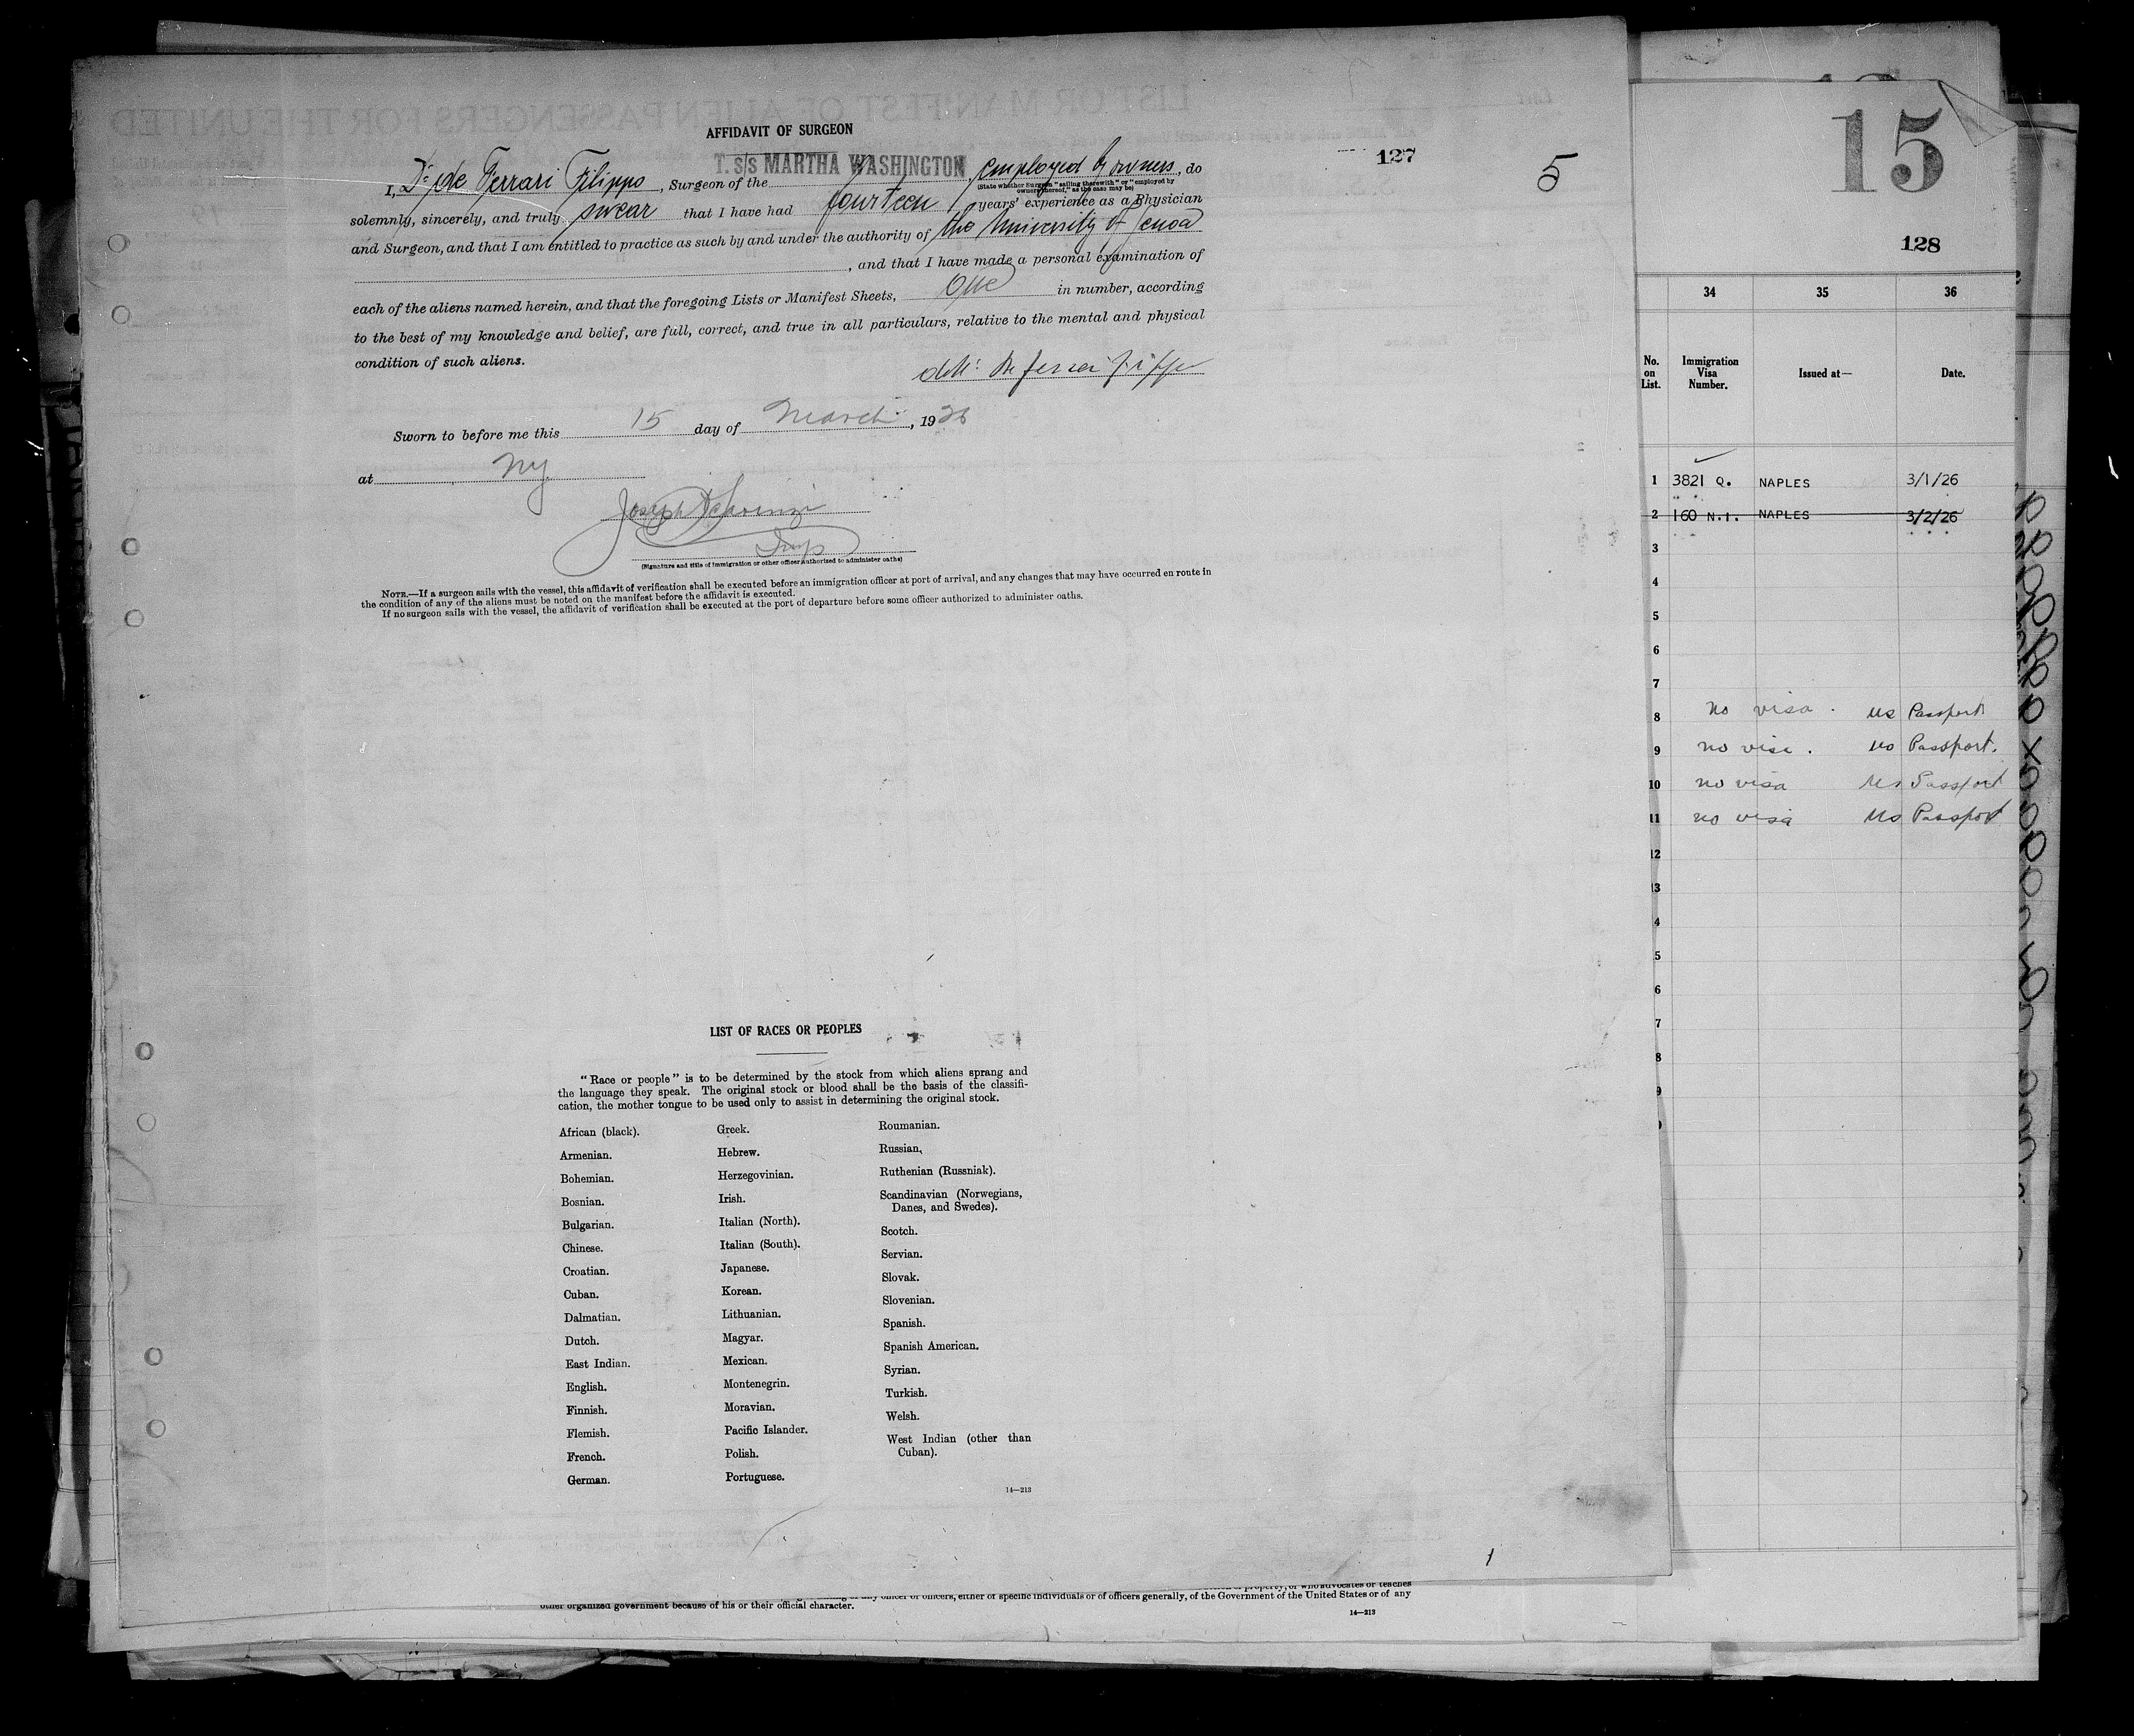 AFFIDAVIT OF SURGEON
127
5
I, Dr de Ferrari Filippo, Surgeon of the T. S/S MARTHA WASHINGTON, employed by owners, do
(State whether Surgeon "sailing therewith" or "employed by
owners thereof," as the case may be)
solemnly, sincerely, and truly swear that I have had fourteen years' experience as a Physician
and Surgeon, and that I am entitled to practice as such by and under the authority of the University of Genoa
, and that I have made a personal examination of
each of the aliens named herein, and that the foregoing Lists or Manifest Sheets, One in number, according
to the best of my knowledge and belief, are full, correct, and true in all particulars, relative to the mental and physical
condition of such aliens.
Sworn to before me this 15 day of March, 1926
at NY
Joseph
Insp
(Signature and title of immigration or other officer authorized to administer oaths)
NOTE.—If a surgeon sails with the vessel, this affidavit of verification shall be executed before an immigration officer at port of arrival, and any changes that may have occurred en route in
the condition of any of the aliens must be noted on the manifest before the affidavit is executed.
If no surgeon sails with the vessel, the affidavit of verification shall be executed at the port of departure before some officer authorized to administer oaths.
LIST OF RACES OR PEOPLES
"Race or people" is to be determined by the stock from which aliens sprang and
the language they speak. The original stock or blood shall be the basis of the classifi-
cation, the mother tongue to be used only to assist in determining the original stock.
African (black).
Armenian.
Bohemian.
Bosnian.
Bulgarian.
Chinese.
Croatian.
Cuban.
Dalmatian.
Dutch.
East Indian.
English.
Finnish.
Flemish.
French.
German.
Greek.
Hebrew.
Herzegovinian.
Irish.
Italian (North).
Italian (South).
Japanese.
Korean.
Lithuanian.
Magyar.
Mexican.
Montenegrin.
Moravian.
Pacific Islander.
Polish.
Portuguese.
Roumanian.
Russian.
Ruthenian (Russniak).
Scandinavian (Norwegians,
Danes, and Swedes).
Scotch.
Servian.
Slovak.
Slovenian.
Spanish.
Spanish American.
Syrian.
Turkish.
Welsh.
West Indian (other than
Cuban).
14—213
1
property, or who advocates or teaches
any officer or officers, either of specific individuals or of officers generally, of the Government of the United States or of any
other organized government because of his or their official character.
14—213
15
128
34 35 36
No. on List. Immigration Visa Number. Issued at— Date.
1 3821 Q. NAPLES 3/1/26
2 160 N.I. NAPLES 3/2/26
3
4
5
6
7
8 no visa. US Passport
9 no visa. US Passport.
10 no visa US Passport
11 no visa US Passport
12
13
4
5
6
7
8
9